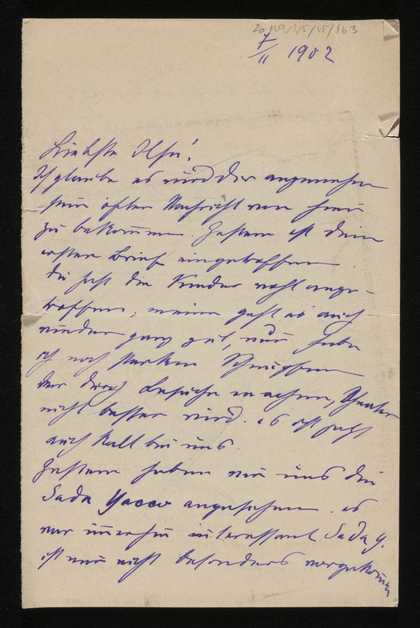 7/II 1902
Liebste Ilse!
Ich glaube es wird Dir angenehm
sein öfter Nachricht von hier
zu bekommen. Gestern ist Dein
erster Brief eingetroffen.
Du hast die Kinder wohl ange-
troffen, mir geht es auch
wieder ganz gut, nur habe
ich noch starken Schnupfen
der durch Besuche machen, Theater
nicht besser wird. es ist jetzt
auch kalt bei uns.
Gestern haben wir uns die
Sada Yacco angesehen. es
war immerhin interessant Sada Y.
ist mir nicht besonders vorgekommen